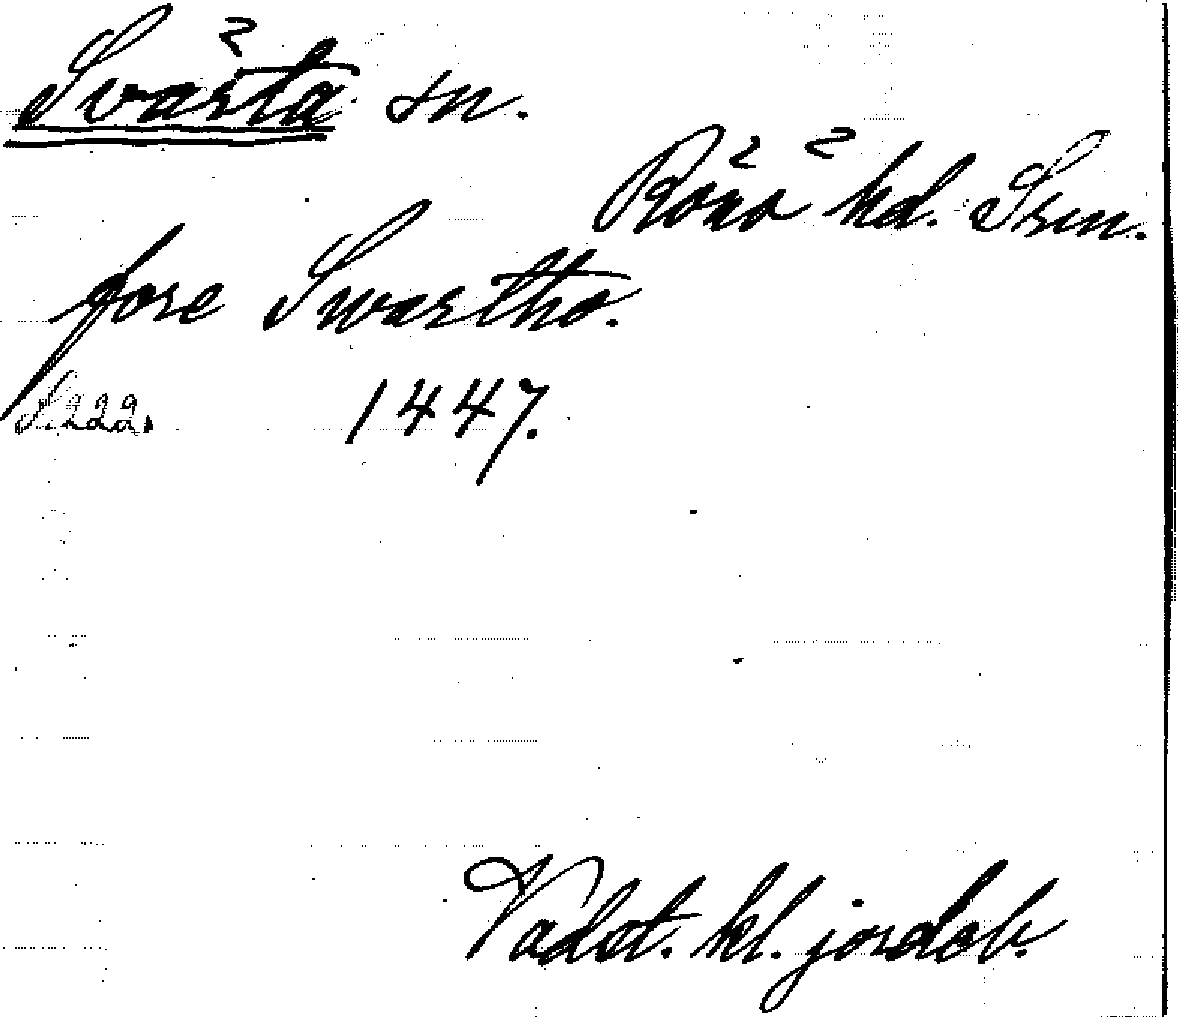 Svärta sn.
Rönö hd. Srm.
fore Swærtho.
S. 222. 1447.
Vadst. kl. jordeb.